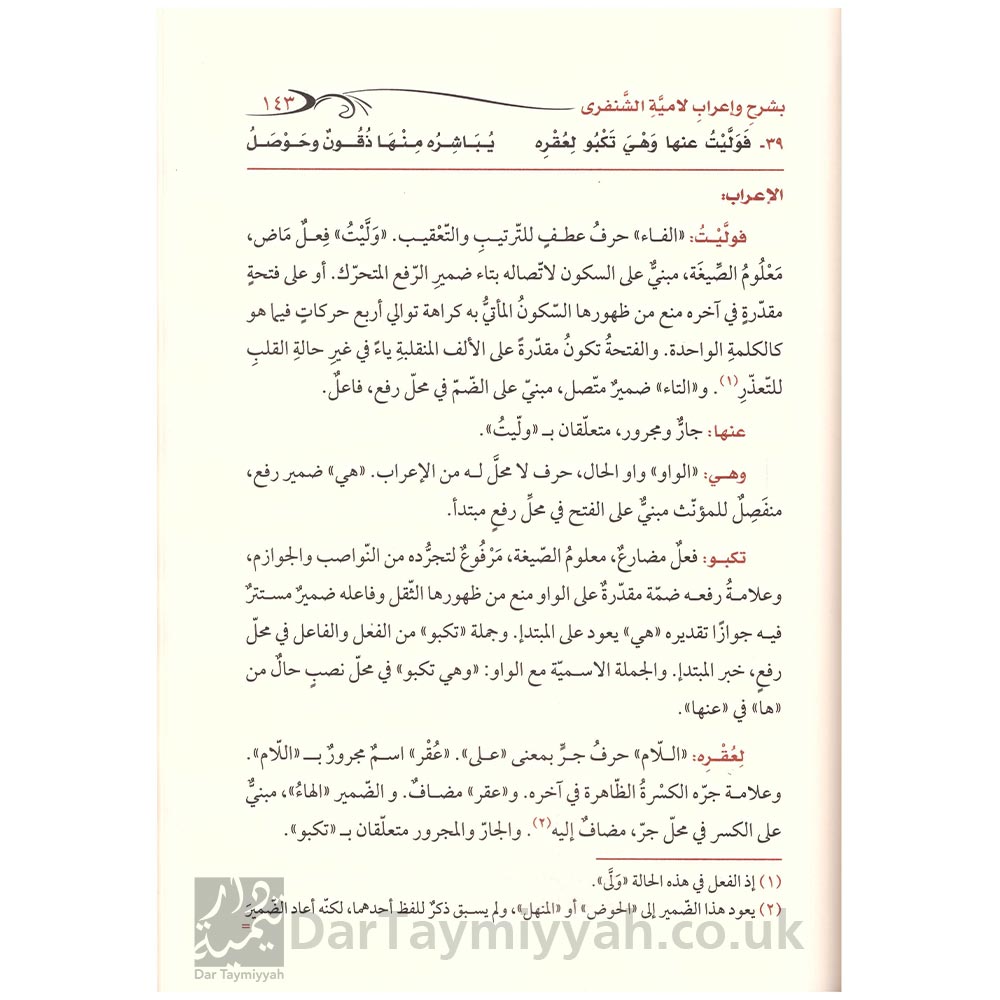 بشرح وإعرابِ لاميَّةِ الشَّنفرى ١٤٣
٣٩- فَوَلَّيْتُ عنها وَهْيَ تَكْبُو لِعُقْرِه يُبَاشِرُه مِنْهَا ذُقُونٌ وحَوْصَلُ
الإعراب:
فولَّيْتُ: «الفاء» حرفُ عطفٍ للتّرتيبِ والتَّعْقيب. «وَلَّيْتُ» فِعلٌ مَاض،
مَعْلُومُ الصِّيغَة، مبنيٌّ على السكون لاتّصاله بتاء ضميرِ الرّفع المتحرّك. أو على فتحةٍ
مقدّرةٍ في آخره منع من ظهورها السّكونُ المأتيُّ به كراهة توالي أربع حركاتٍ فيما هو
كالكلمةِ الواحدة. والفتحةُ تكونُ مقدّرةً على الألف المنقلبةِ ياءً في غيرِ حالةِ القلبِ
للتّعذّرِ(١). و«التاء» ضميرٌ متّصل، مبنيّ على الضّمّ في محلّ رفع، فاعلٌ.
عنها: جارٌّ ومجرور، متعلّقان بـ «ولّيتُ».
وهـي: «الواو» واو الحال، حرف لا محلَّ لـه من الإعراب. «هي» ضمير رفع،
منفَصِلٌ للمؤنّث مبنيٌّ على الفتح في محلِّ رفعٍ مبتدأ.
تكبـو: فعلٌ مضارعٌ، معلومُ الصّيغة، مَرْفُوعٌ لتجرُّده من النّواصب والجوازم،
وعلامةُ رفعه ضمّة مقدّرةٌ على الواو منع من ظهورها الثّقل وفاعله ضميرٌ مستترٌ
فيـه جوازًا تقديره «هي» يعود على المبتدإ. وجملة «تكبو» من الفعل والفاعل في محلّ
رفعٍ، خبر المبتدإ. والجملة الاسميّة مع الواو: «وهي تكبو» في محلّ نصبٍ حالٌ من
«ها» في «عنها».
لِعُقْـرِه: «الـلّام» حرفُ جرٍّ بمعنى «على». «عُقْر» اسمٌ مجرورٌ بـ «اللّام».
وعلامـة جرّه الكسْرةُ الظّاهرة في آخره. و«عقر» مضافٌ. و الضّمير «الهاءُ»، مبنيٌّ
على الكسر في محلّ جرّ، مضافٌ إليه(٢). والجارّ والمجرور متعلّقان بـ «تكبو».
(١) إذ الفعل في هذه الحالة «وَلَّى».
(٢) يعود هذا الضّمير إلى «الحوض» أو «المنهل»، ولم يسبق ذكرٌ للفظ أحدهما، لكنّه أعاد الضّميرَ =
دار تيمية
Dar Taymiyyah
DarTaymiyyah.co.uk